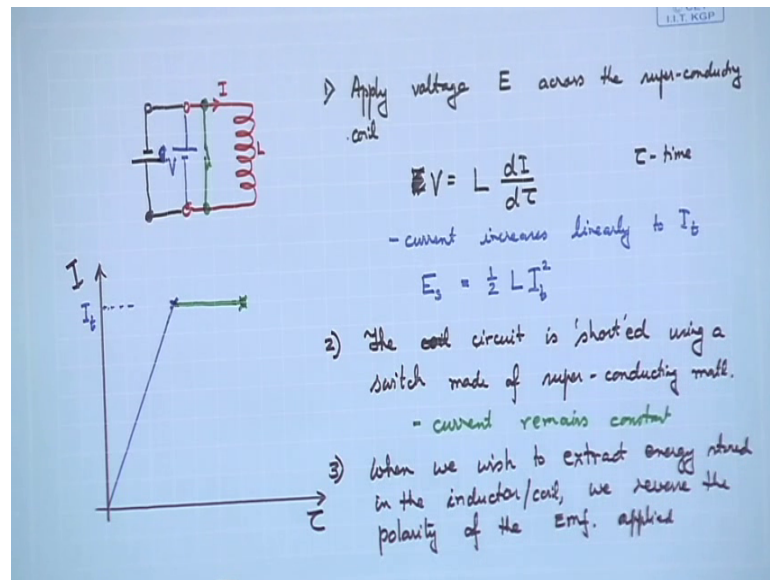 I.I.T. KGP
I
V
L
I
I_t
τ
1) Apply voltage E across the super-conducting
coil
V = L dI/dτ
τ - time
- current increases linearly to I_t
E_s = 1/2 L I_t^2
2) The circuit is 'short'ed using a
switch made of super-conducting matl.
- current remains constant
3) When we wish to extract energy stored
in the inductor/coil, we reverse the
polarity of the Emf. applied